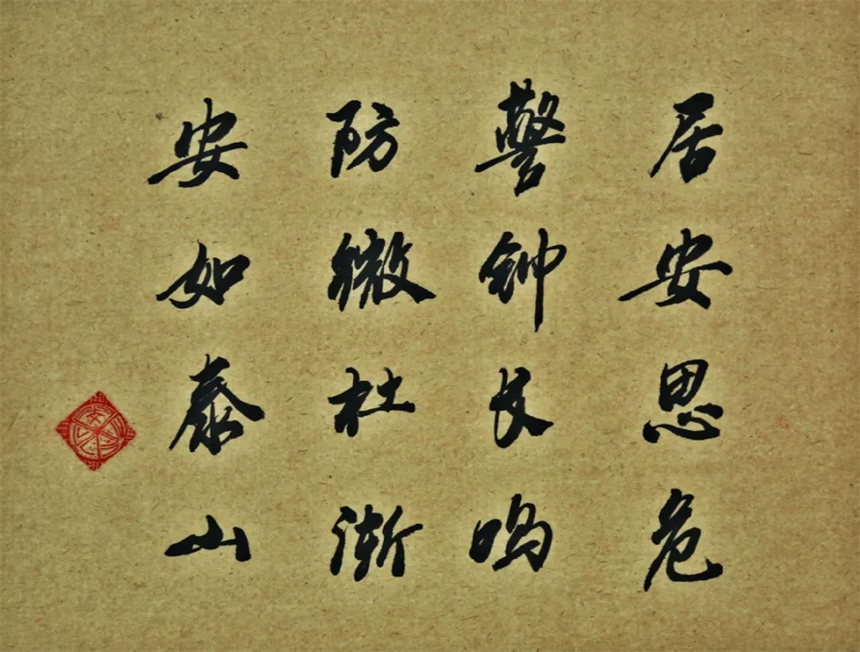 居安思危
警钟长鸣
防微杜渐
安如泰山